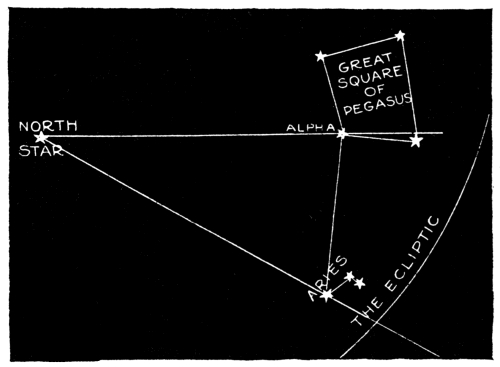 GREAT
SQUARE
OF
PEGASUS
NORTH
STAR
ALPHA
ARIES
THE ECLIPTIC